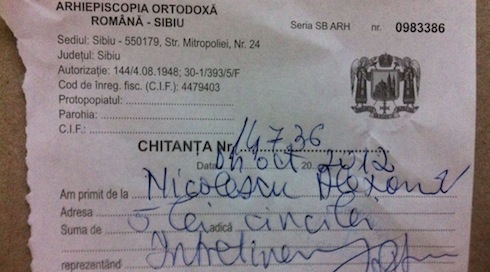 ARHIEPISCOPIA ORTODOXĂ
ROMÂNĂ - SIBIU
Seria SB ARH nr. 0983386
Sediul: Sibiu - 550179, Str. Mitropoliei, Nr. 24
Județul: Sibiu
Autorizație: 144/4.08.1948; 30-1/393/5/F
Cod de înreg. fisc. (C.I.F.): 4479403
Protopopiatul:
Parohia:
C.I.F.:
CHITANȚA Nr. 14736
Data oct 20 2012
Am primit de la Nicolescu
Adresa
Suma de 5 lei adică cinci lei
reprezentând